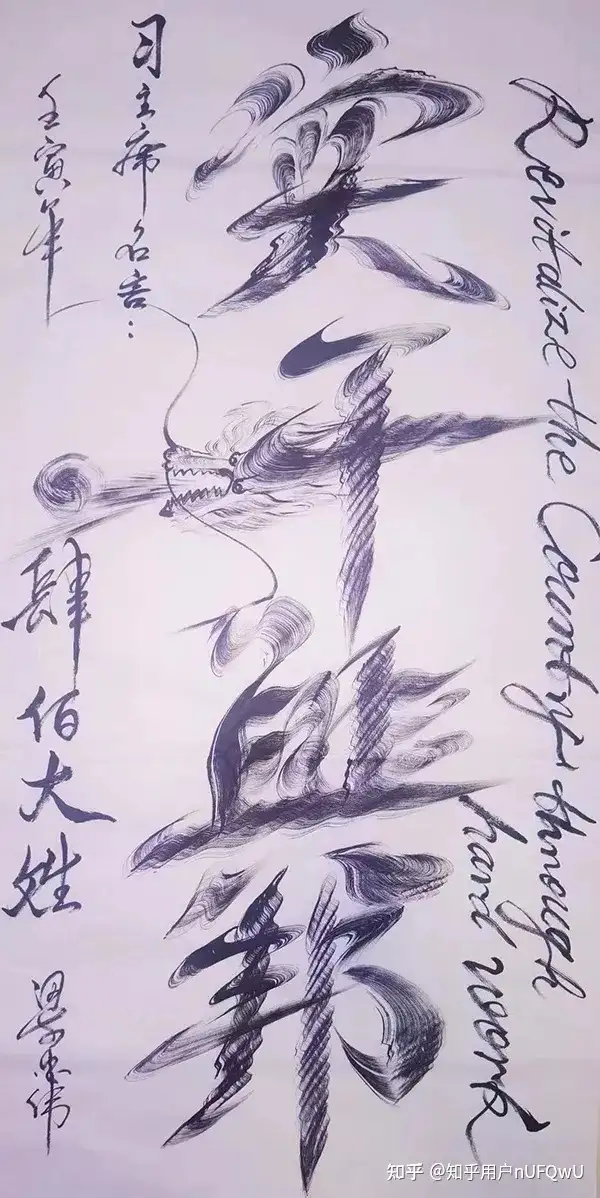 Revitalize the Country through
hard work
实干興邦
习主席名言：
壬寅年
肆佰大姓
知乎 @知乎用户nUFQwU